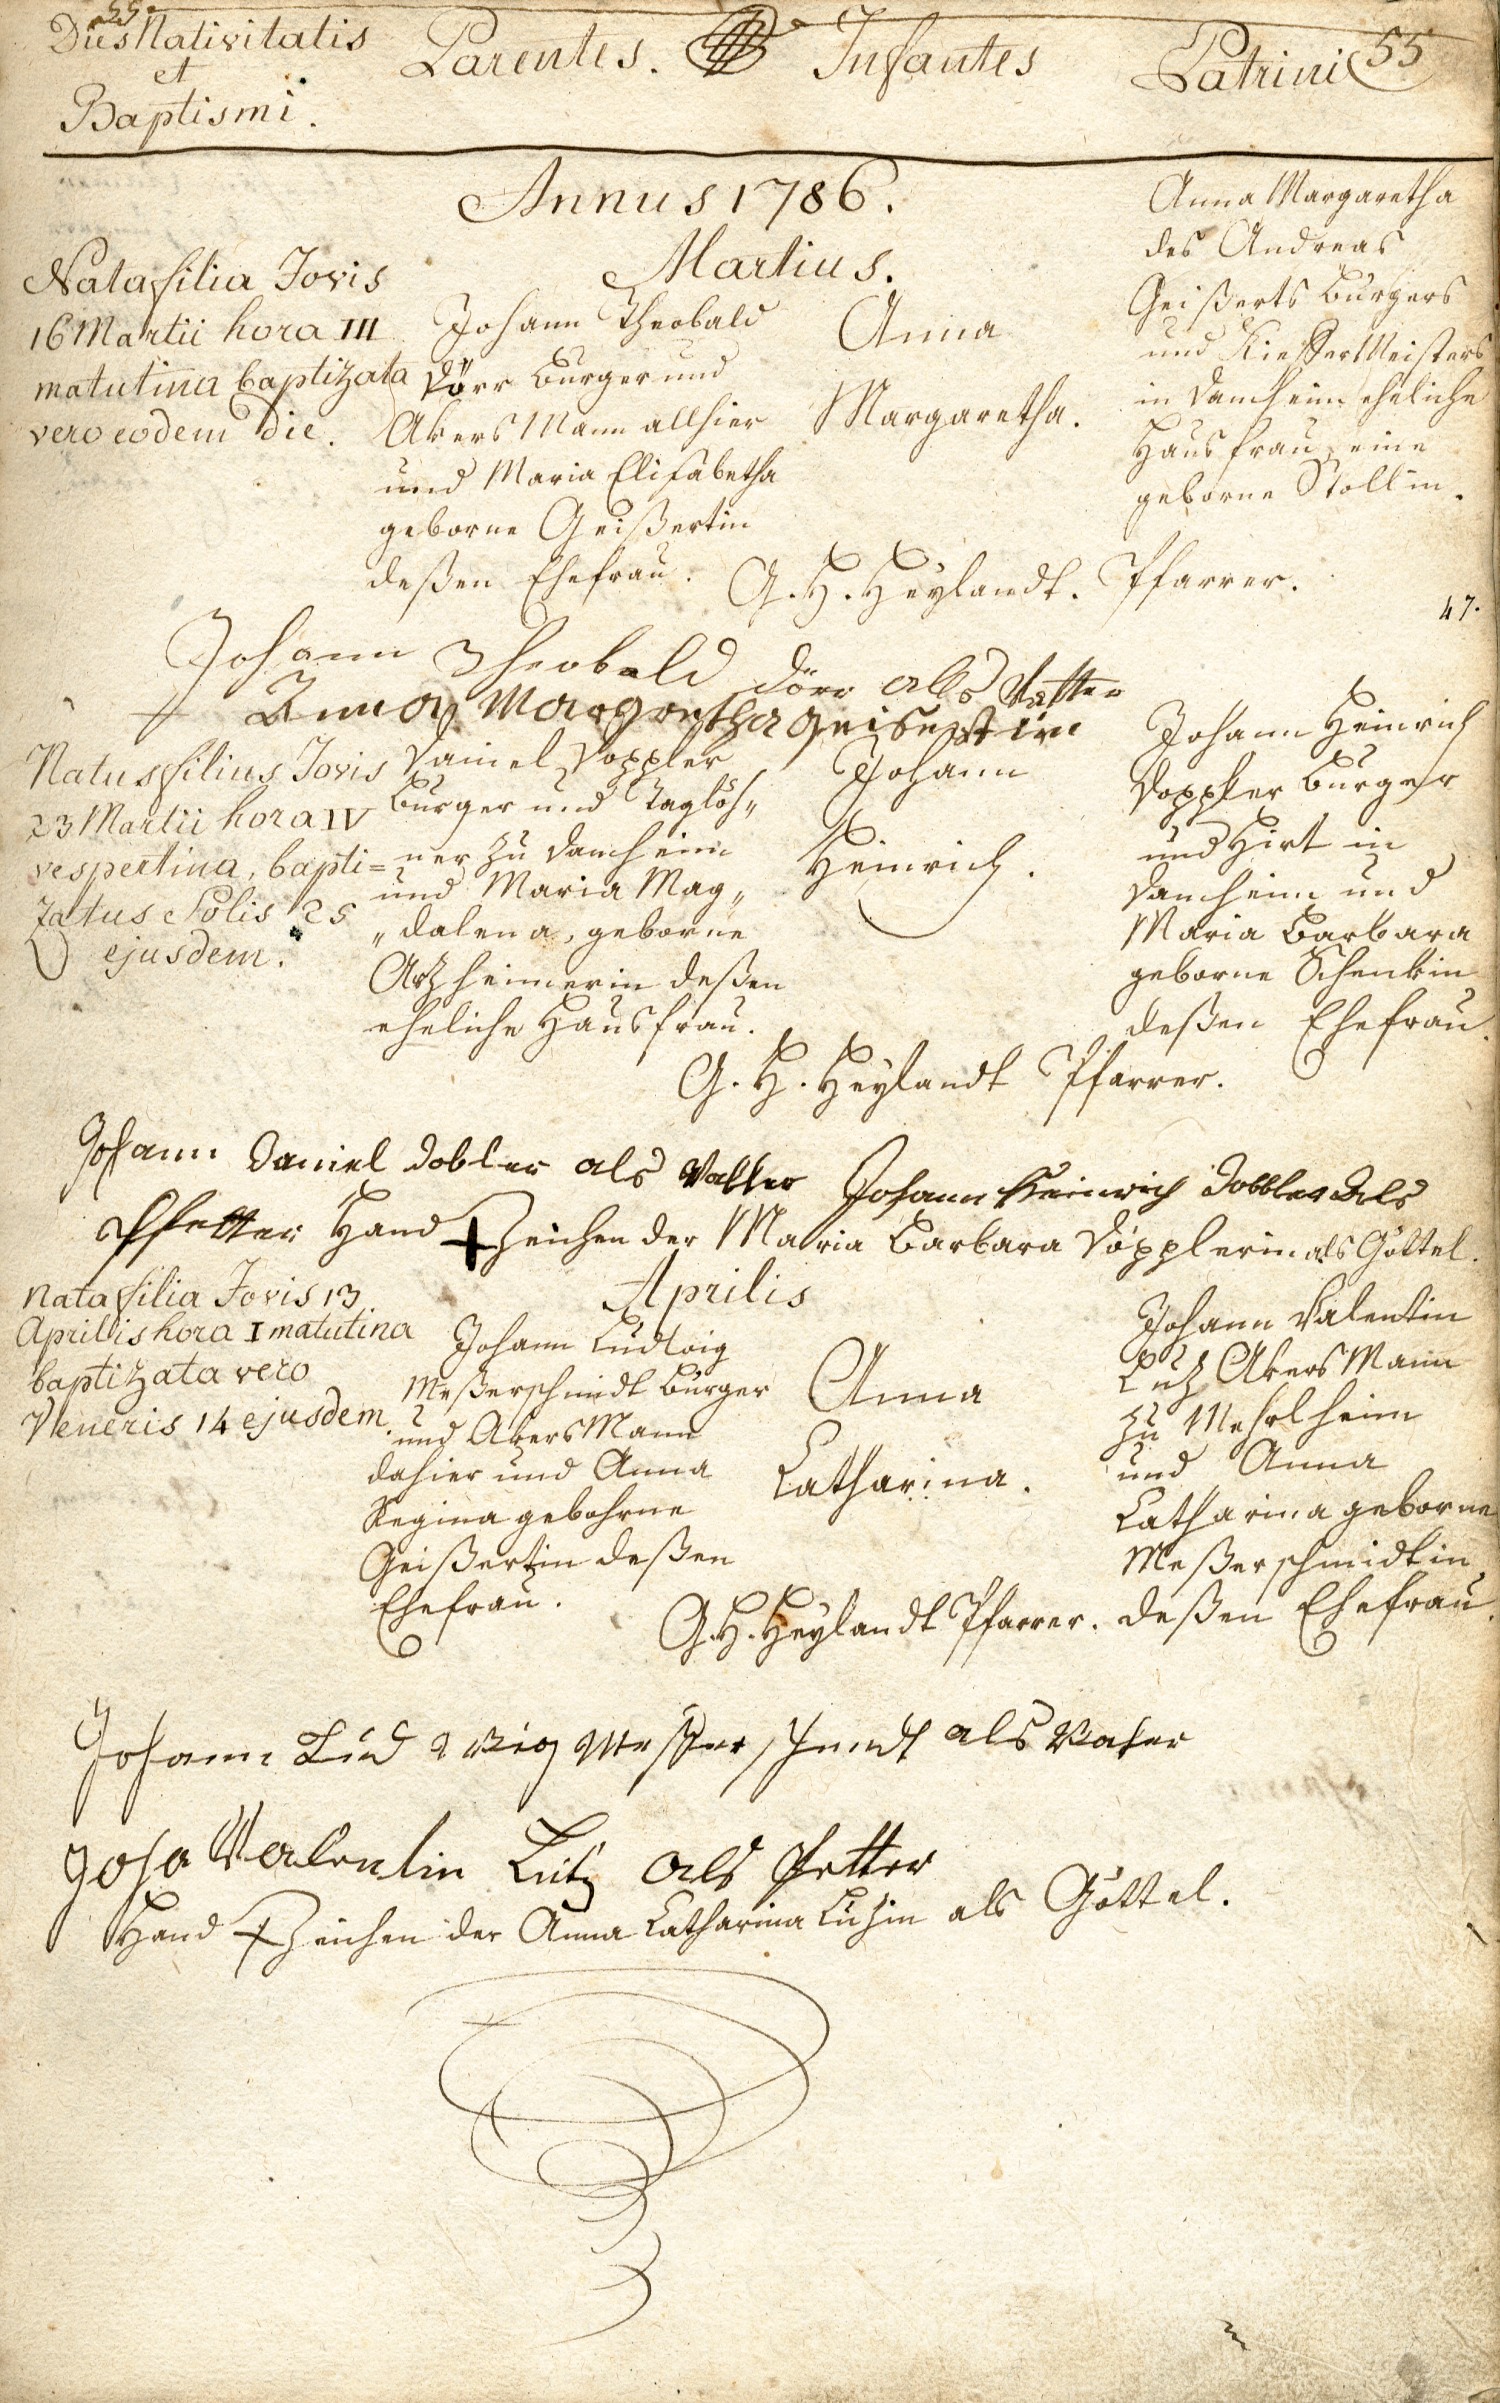 55.
Dies Nativitatis
et
Baptismi.
Parentes.
Infantes
Patrini
55
Annus 1786.
Martius.
Nata filia Jovis
16 Martii hora III
matutina baptizata
vero eodem die.
Johann Theobald
Dörr Burger und
Akers Mann allhier
und Maria Elisabetha
geborne Geißertin
deßen Ehefrau.
Anna
Margaretha.
Anna Margaretha
des Andreas
Geißerts Burgers
und Kieffer Meisters
in Damheim eheliche
Hausfrau, eine
geborne Stollin.
G. H. Heylandt. Pfarrer.
47.
Johann Theobald Dörr als Vatter
Anna Margretha Geisertin
Natus filius Jovis
23 Martii hora IV
vespertina, bapti=
zatus Solis 25
ejusdem.
Daniel Doppler
Burger und Taglöh„
ner zu Damheim
und Maria Mag„
„dalena, geborne
Arzheimerin deßen
eheliche Hausfrau.
Johann
Heinrich.
Johann Heinrich
Doppler Burger
und Hirt in
Damheim und
Maria Barbara
geborne Schenkin
deßen Ehefrau.
G. H. Heylandt Pfarrer.
Johann Daniel Dobler als Vatter Johann Heinrich Dobbler Als
Pfetter Hand + Zeichen der Maria Barbara Döpplerin als Göttel.
Aprilis
Nata filia Jovis 13
Aprilis hora I matutina
baptizata vero
Veneris 14 ejusdem.
Johann Ludwig
Meßerschmidt Burger
und Akers Mann
dahier und Anna
Regina gebohrne
Geißertin deßen
Ehefrau.
Anna
Catharina.
Johann Valentin
Luz Akers Mann
zu Mehrlheim
und Anna
Catharina geborne
Meßerschmidtin
deßen Ehefrau.
G. H. Heylandt Pfarrer.
Johann Ludwig Messerschmidt als Vater
Joha Valentin Lutz als Petter
Hand + Zeichen der Anna Catharina Luzin als Göttel.